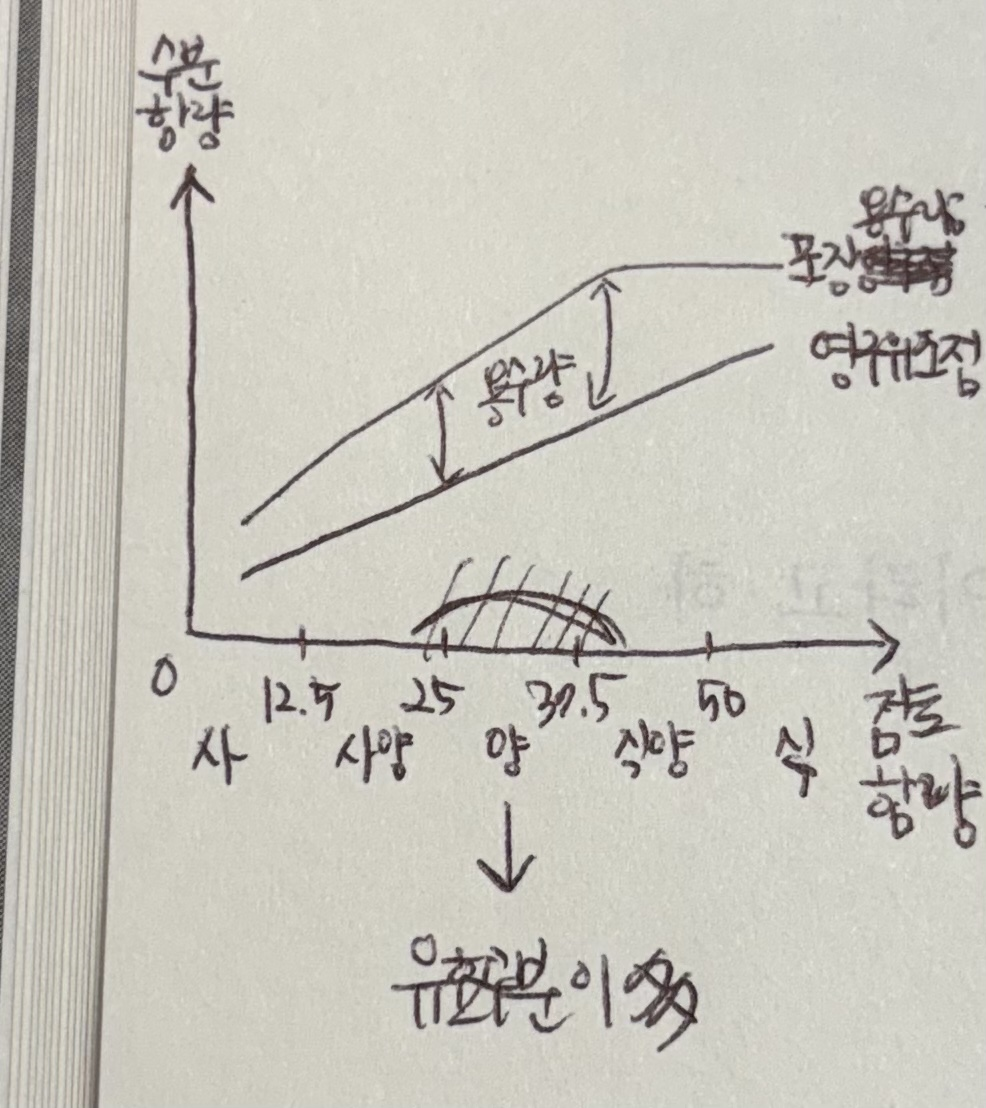 수분
함량
용수량
포장
영구위조점
용수량
0
12.5
25
37.5
50
점토
함량
사
사양
양
식양
식
유효수분이 多